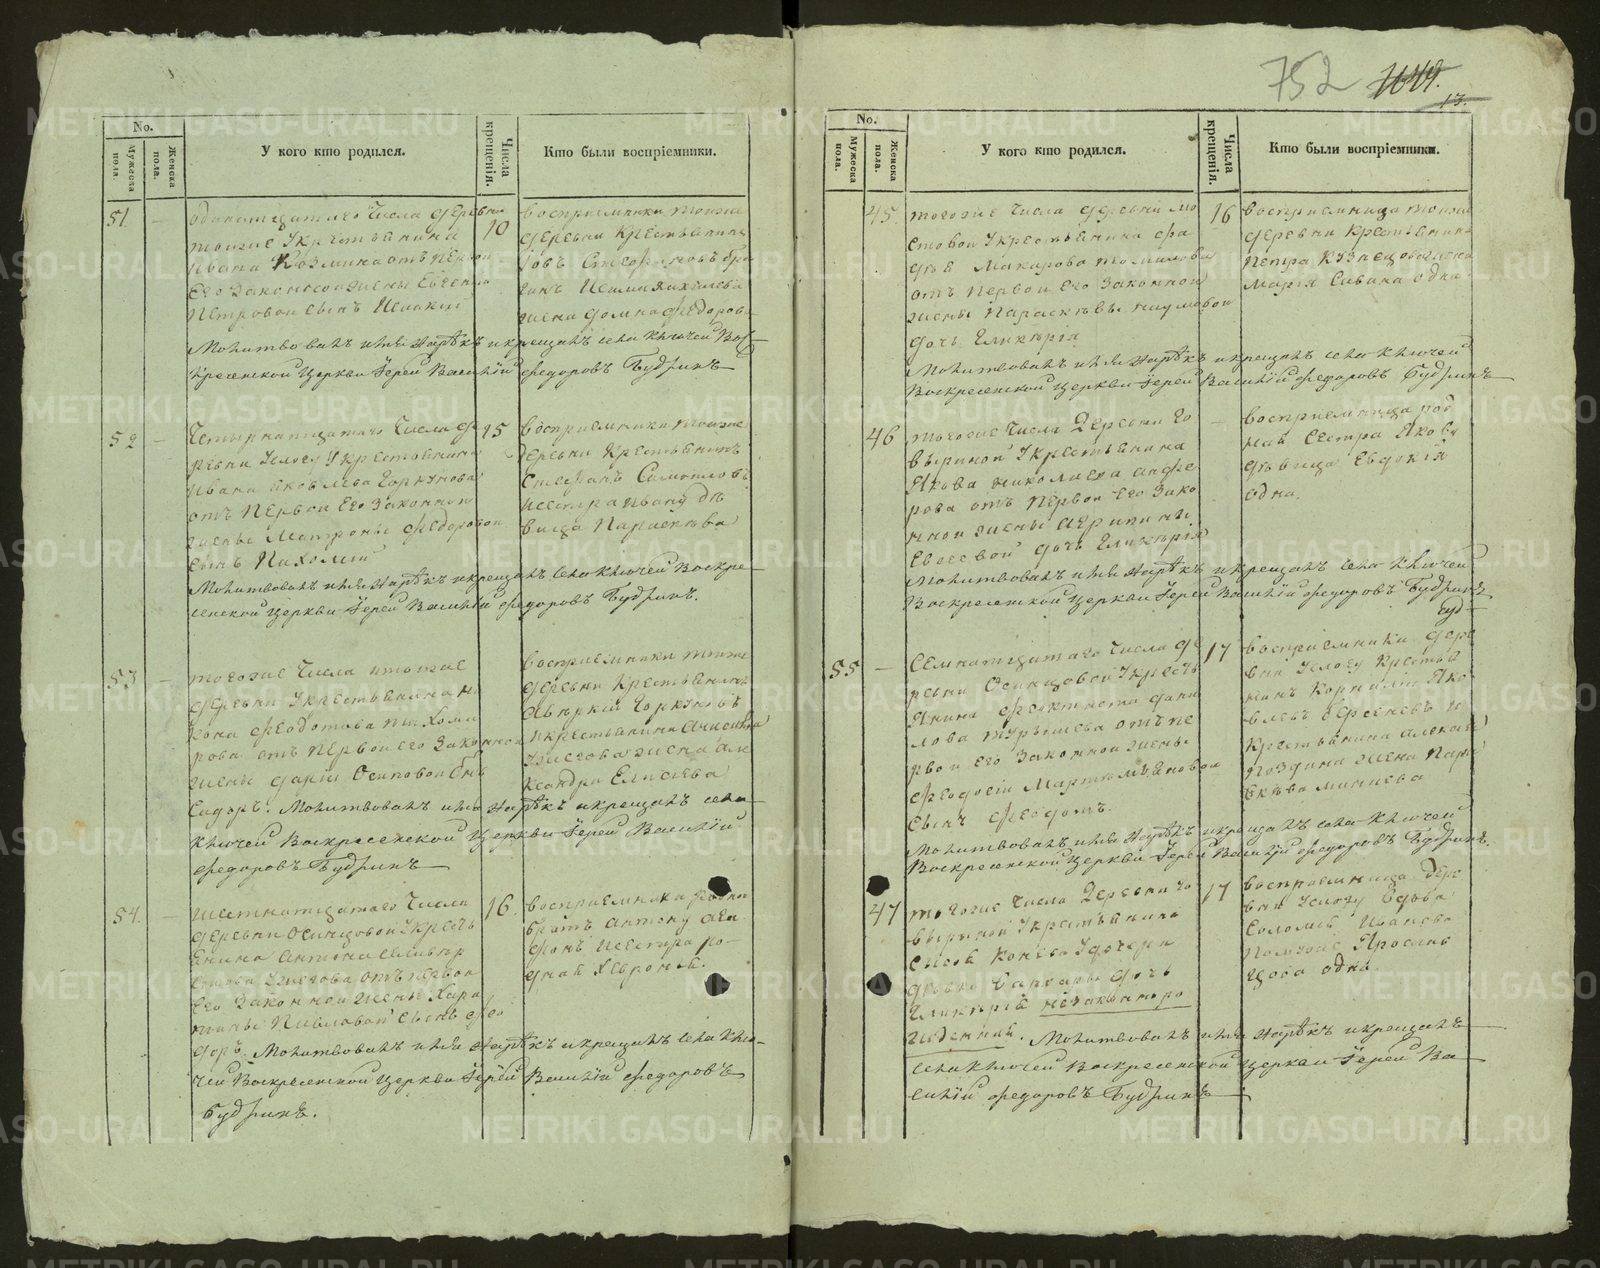 752 1649.
13.
No.
Мужеска пола.
Женска пола.
У кого кто родился.
Числа крещенія.
Кто были воспріемники.
51
одинатцатаго числа деревни
тоижже укрестьянина
Ивана Козмина отъ первой
Его законной жены Евгении
Петровой сынъ Исаакий
Молитвовалъ имя нарѣкъ и крещалъ села Ключей Вос
кресенской церкви Іерей Василій Федоровъ Будринъ
10
восприемники тоиже
деревни крестьянинъ
жена домна федорова
52
Четырнатцатаго числа де
ревни укрестьянина
Ивана Яковлева Горкунова
отъ первой Его законной
жены Матроны Федоровой
сынъ Пахомий
Молитвовалъ имя нарѣкъ и крещалъ села Ключей Воскре
сенской церкви Іерей Василій Федоровъ Будринъ.
15
восприемники тоиже
деревни крестьянинъ
Стефанъ Самойловъ
исестра ивану дѣ
вица Параскѣва
53
тогоже числа итоиже
деревни укрестьянина
кона Феодотова
рова отъ первой его законной
жены дарьи Осиповой сынъ
Сидоръ. Молитвовалъ имя нарѣкъ и крещалъ села
Ключей Воскресенской церкви Іерей Василій
Федоровъ Будринъ
восприемники тоиже
деревни крестьянинъ
Аверкий Горкуновъ
икрестьянина
жена Але
ксандра Елисеева
54.
шестнатцатаго числа
деревни Осинцовой укресть
янина Антона
отъ первой
Его законной жены Хари
тины Павловой сынъ Фео
доръ. Молитвовалъ имя нарѣкъ и крещалъ села Клю
чей Воскресенской церкви Іерей Василій Федоровъ
Будринъ.
16.
восприемника родной
братъ Антону Ага
фонъ исестра ро
дная Хеврония.
No.
Мужеска пола.
Женска пола.
У кого кто родился.
Числа крещенія.
Кто были воспріемники.
45
тогоже числа деревни мо
стовой укрестьянина фа
дѣя Макарова томилова
отъ первой его законной
жены Параскѣвы наумовой
дочь Гликѣрія
Молитвовалъ имя нарѣкъ и крещалъ села Ключей
Воскресенской церкви Іерей Василій Федоровъ Будринъ
16
восприемница тоиже
деревни крестьянина
Петра Кузнецова жена
мария Савина одна
46
тогоже числа Деревни Го
выриной укрестьянина
Якова николаева анфе
рова отъ первой его зако
нной жены агрипины
Евсеевой дочь Гликѣрія
Молитвовалъ имя нарѣкъ и крещалъ села Ключей
Воскресенской церкви Іерей Василій Федоровъ Будринъ
Буд
восприемница род
ная сестра Якову
дѣвица Евдокия
одна.
55
Семнатцатаго числа де
ревни Осинцовой укресть
янина Феоктиста дани
лова турышева отъ пе
рвой его законной жены
Феодосьи Мартемьяновой
сынъ Феодотъ.
Молитвовалъ имя нарѣкъ и крещалъ села Ключей
Воскресенской церкви Іерей Василій Федоровъ Будринъ.
17
восприемники дере
вни крестья
нинъ Корнилий Яко
влевъ и
крестьянина алексѣя
жена Пара
скѣва минаева
47
тогоже числа Деревни Го
выриной укрестьянина
Сысоя Конева удочери
дѣвки варвары дочь
Гликѣрия незаконноро
жденная. Молитвовалъ имя нарѣкъ и крещалъ
села Ключей Воскресенской церкви Іерей Ва
силій Федоровъ Будринъ
17
восприемница дере
вни вдова
Соломия Иванова
одна.
METRIKI.GASO-URAL.RU